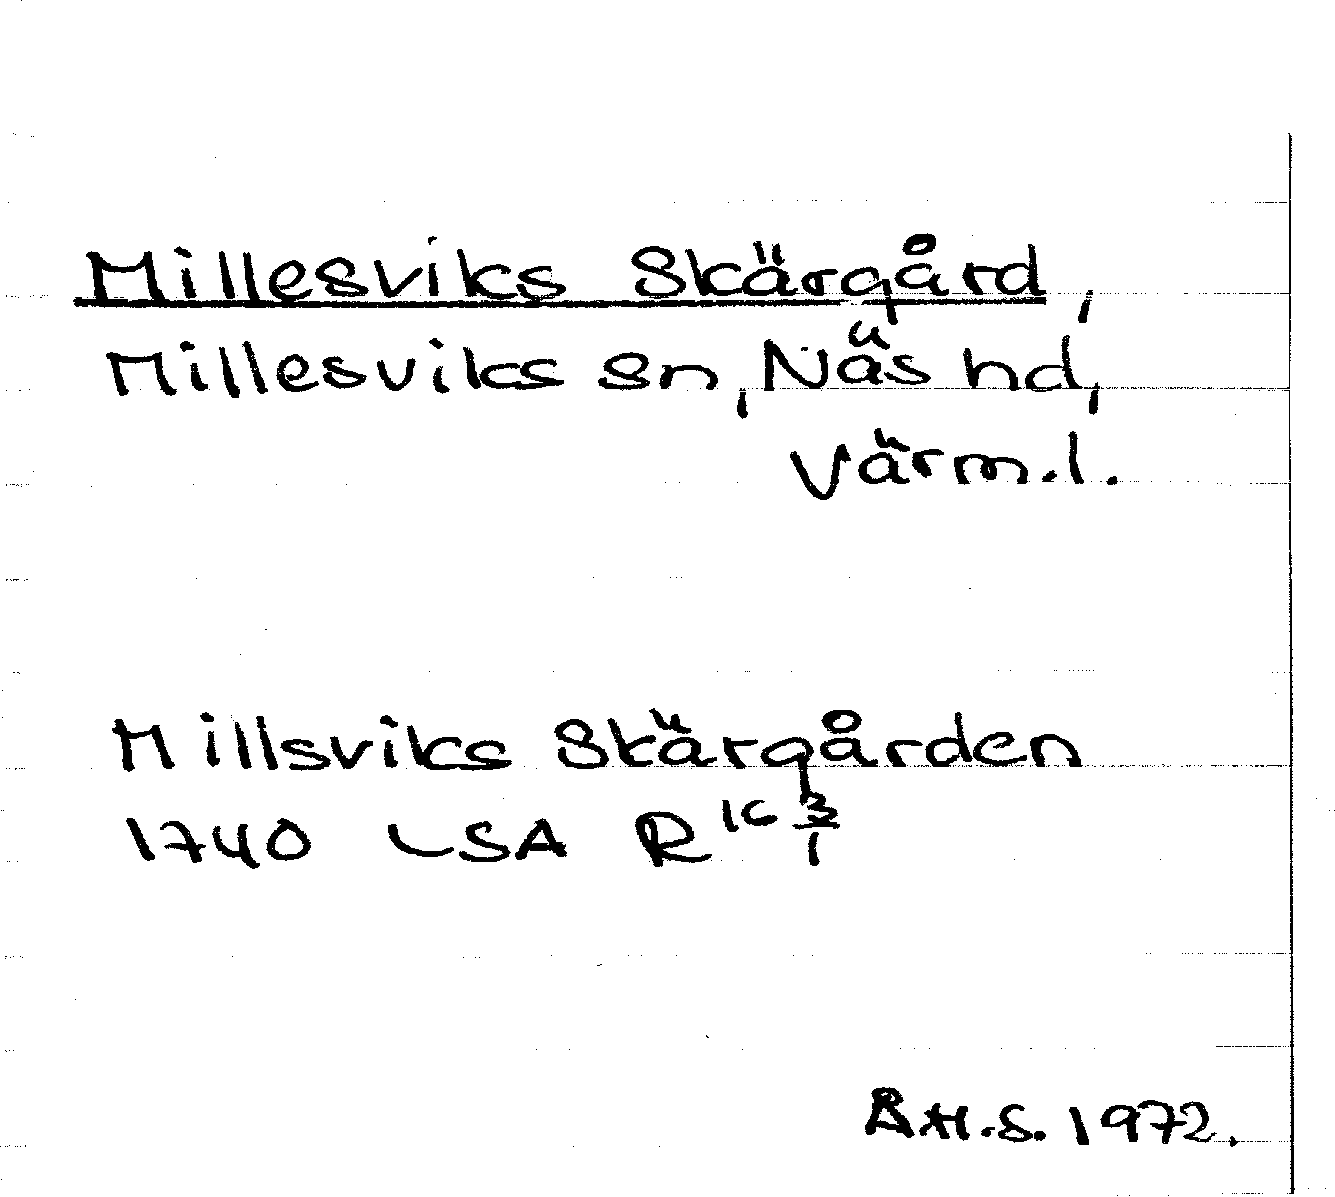 Millesviks Skärgård,
Millesviks sn, Näs hd,
Värm.l.
Millsviks Skärgården
1740 LSA R 16 3/1
Å.H.S. 1972.